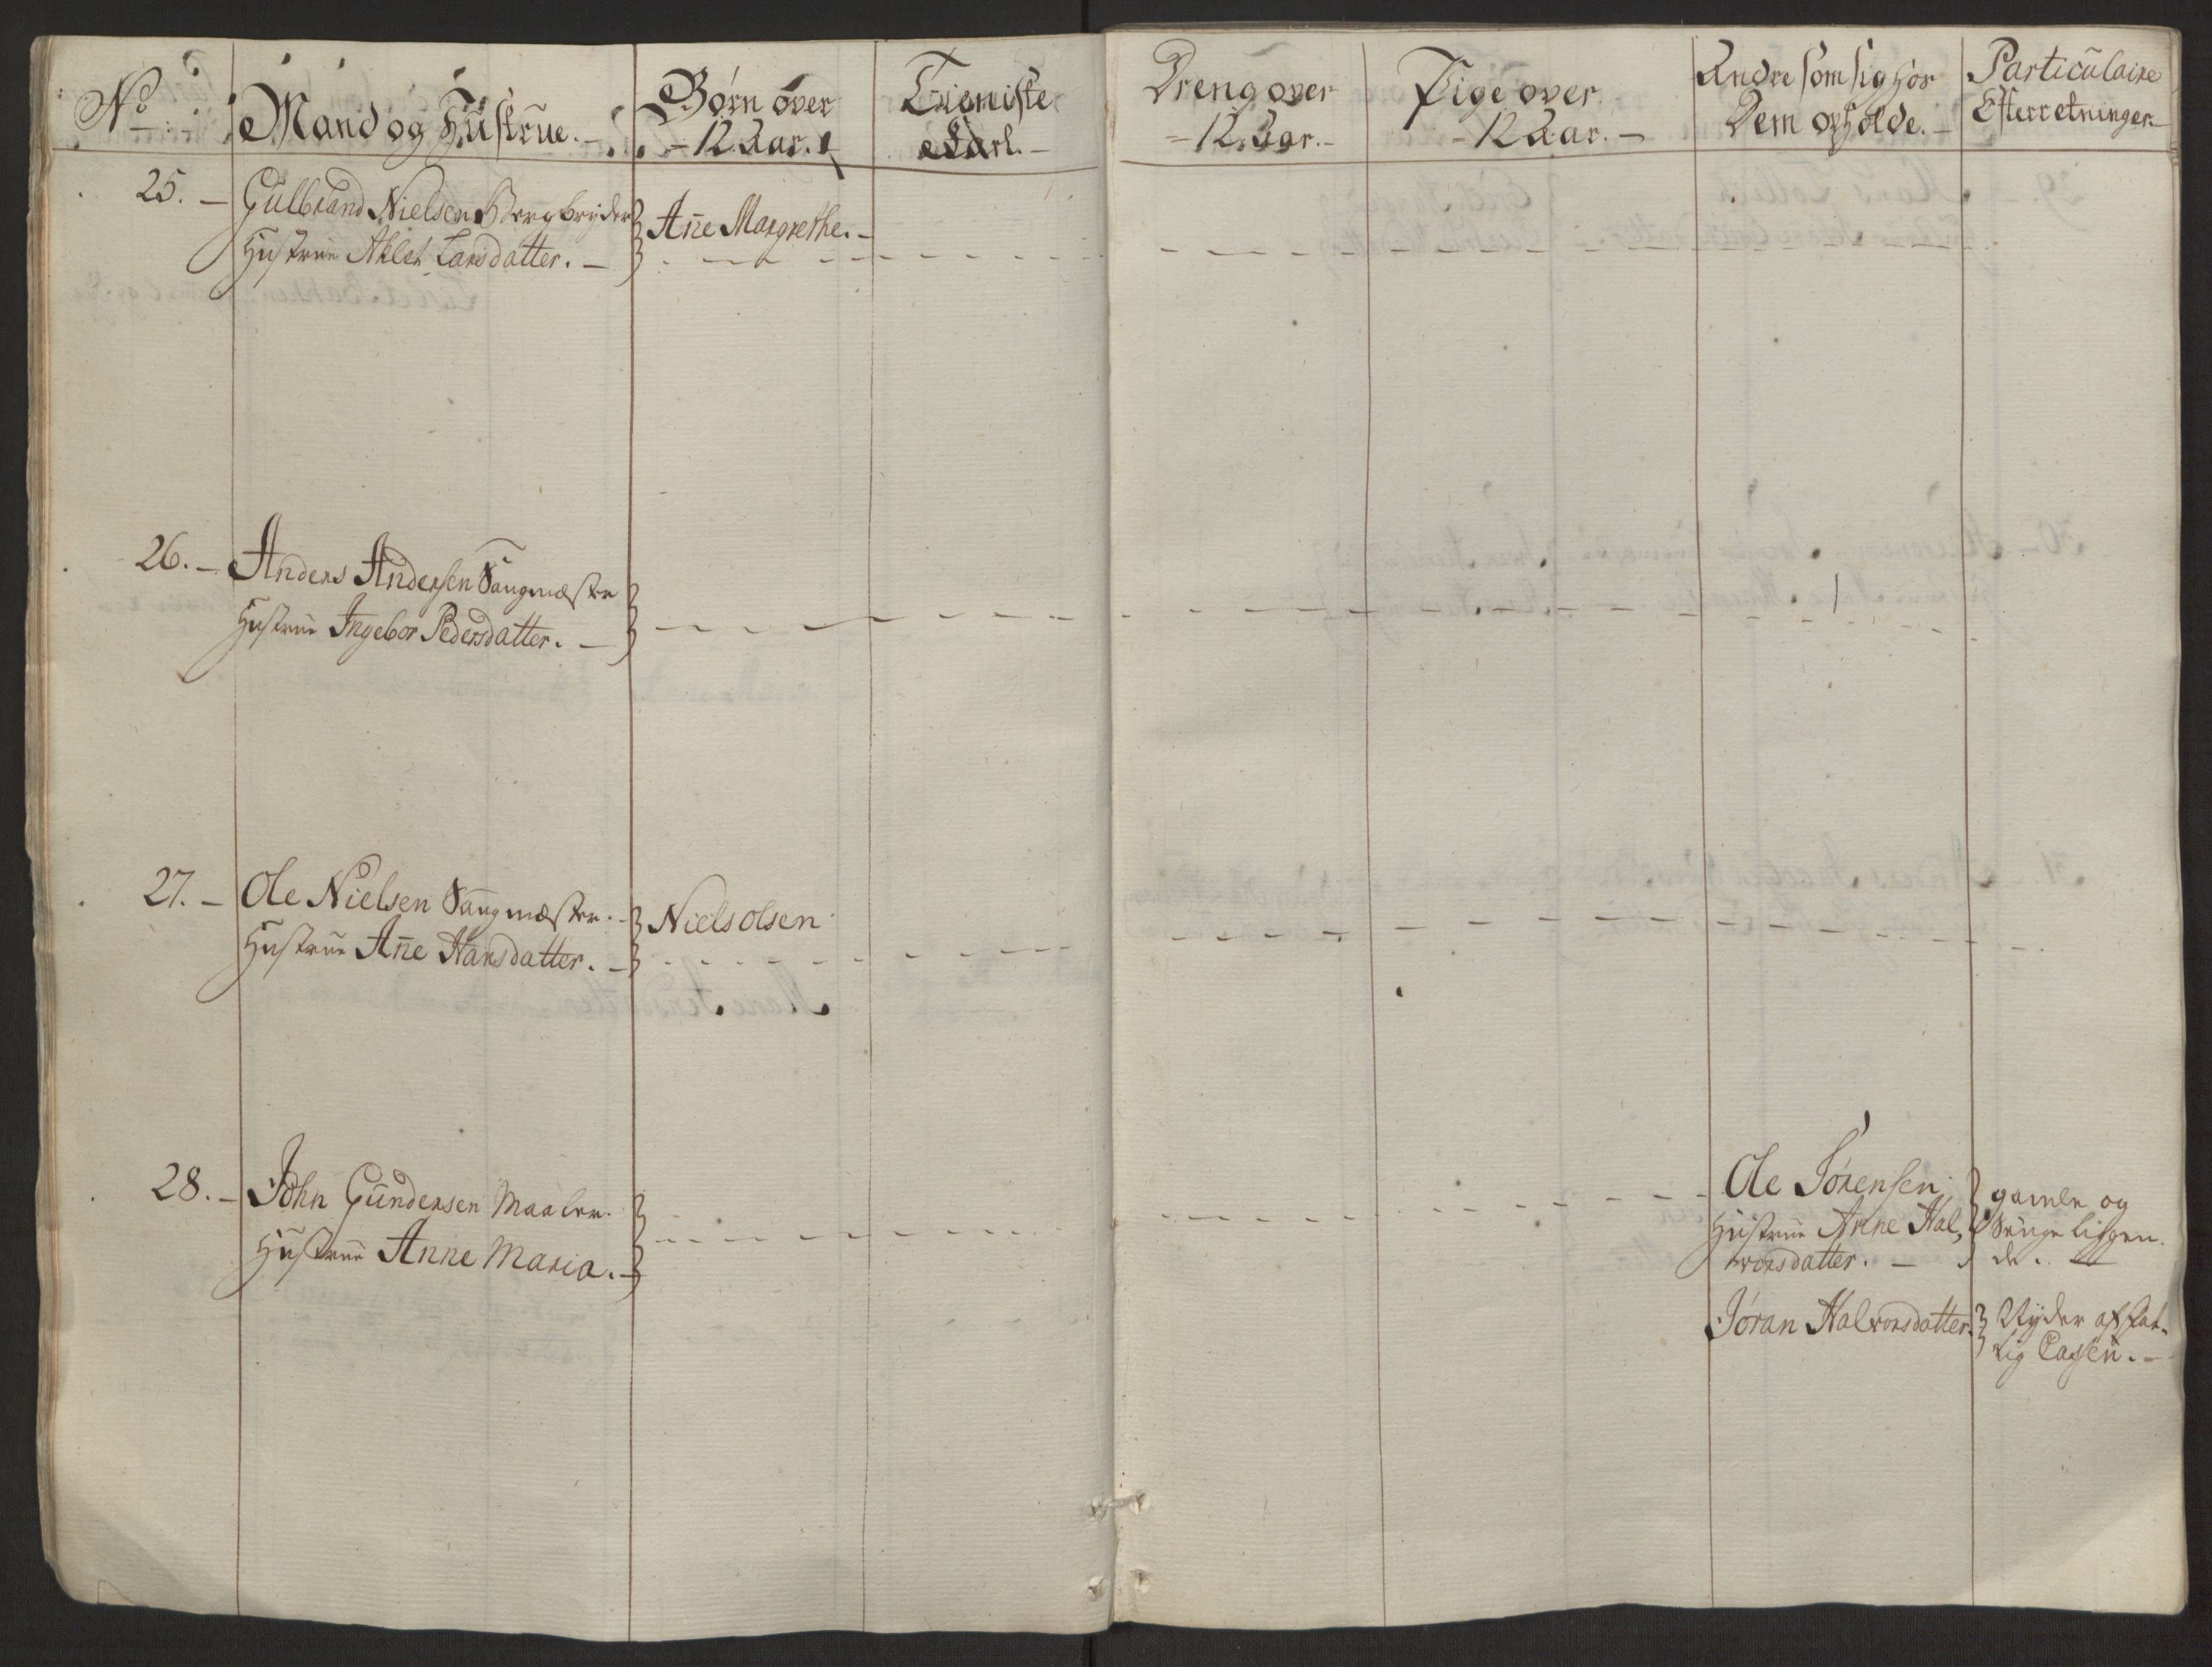 No
Mand og Hüstrue.
Børn over
12. Aar.
Tieniste
Karl.
Dreng over
12. Aar.
Pige over
12 Aar.
Andre som sig hos
Dem opholde.
Particulaire
Efterretninger
25. Gulbrand Nielsen Bergbryder
Hustrue Ahlet Larsdatter.
Añe Margrethe.
26. Anders Andersen Saugmæster
Hustrue Ingebor Pedersdatter.
27. Ole Nielsen Saugmæster.
Hustrue Añe Hansdatter.
Niels Olsen
28. John Gündersen Maaler.
Hustrue Anne Maria.
Ole Sørensen
Hustrue Anne Hal,
vorsdatter.
gamle og
Senge liggen
de.
Jøran Halvorsdatter.
Nyder af Fat-
tig Cassen.